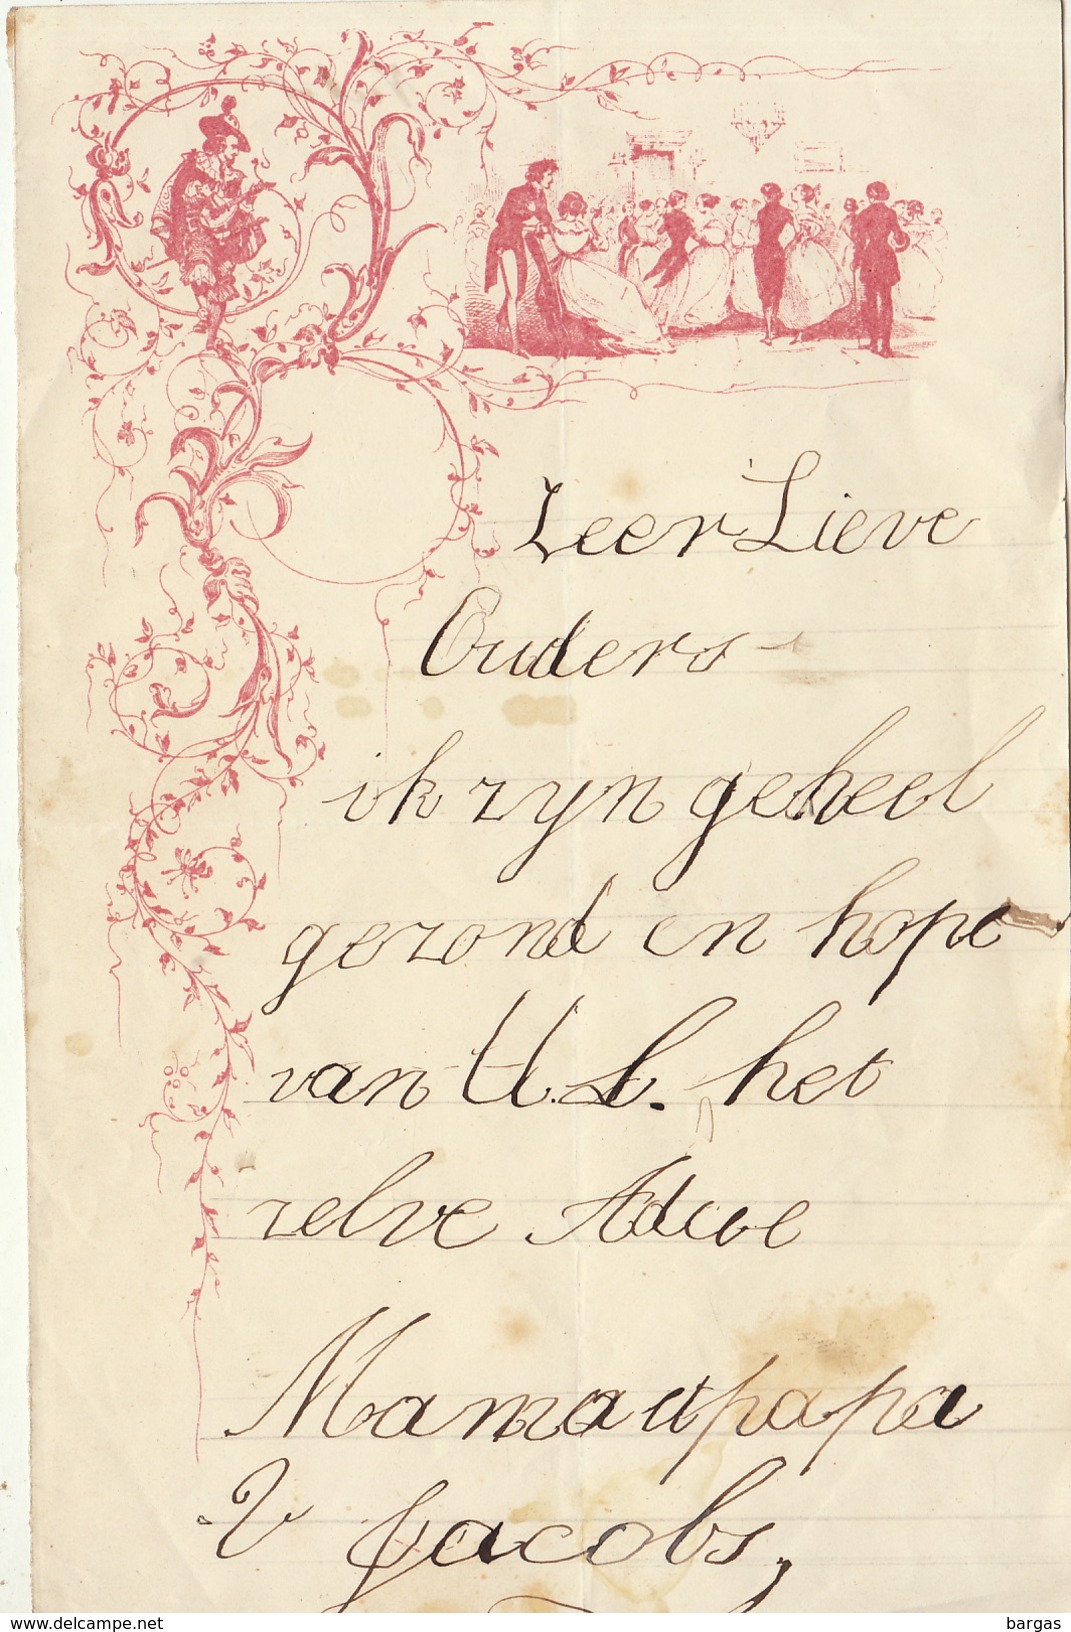 Zeer Lieve
Ouders
ik zyn geheel
gezond en hope
van U.L. het
zelve Adue
Mama et papa
V Jacobs,
© www.delcampe.net
bargas